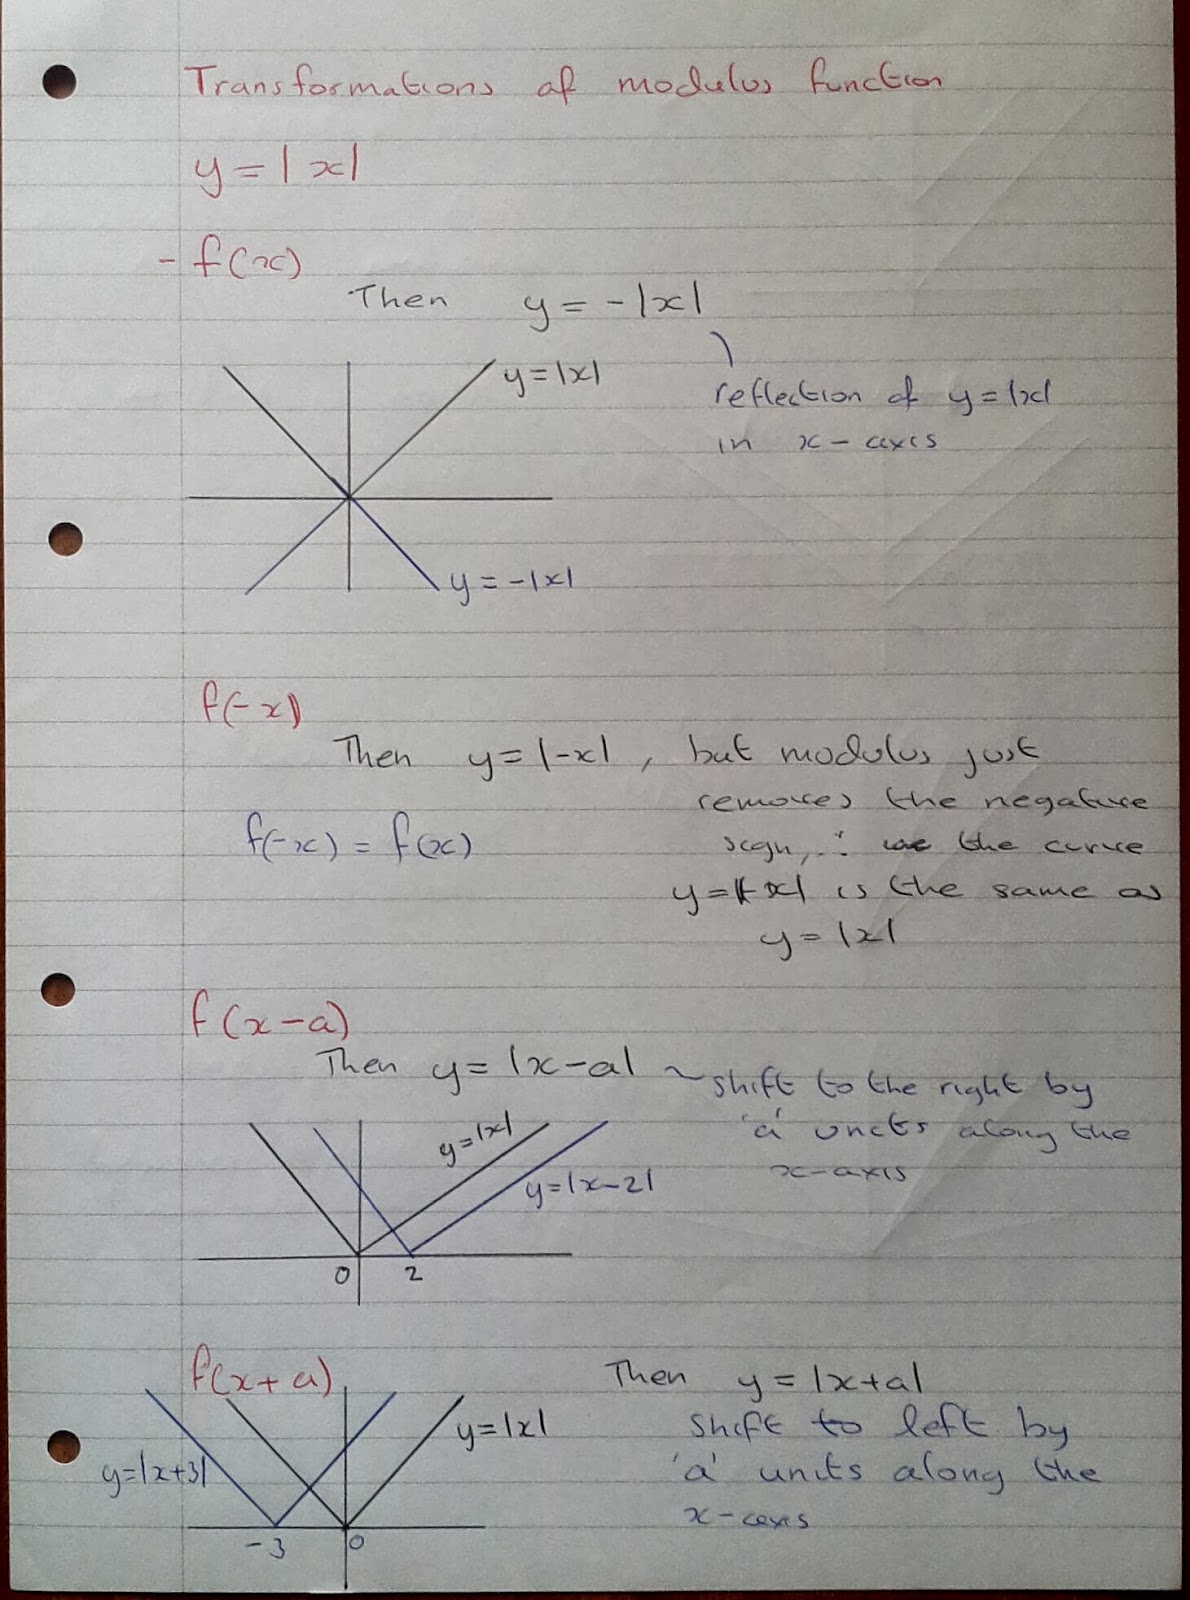 Transformations of modulus function
y = |x|
- f(x)
Then y = -|x|
y = |x|
reflection of y = |x|
in x-axis
y = -|x|
f(-x)
Then y = |-x| , but modulus just
removes the negative
f(-x) = f(x)
sign, ∴ the curve
y = |-x| is the same as
y = |x|
f(x-a)
Then y = |x-a| ~ shift to the right by
'a' units along the
x-axis
y=|x|
y=|x-2|
0 2
f(x+a)
Then y = |x+a|
shift to left by
'a' units along the
x-axis
y=|x|
y=|x+3|
-3 0